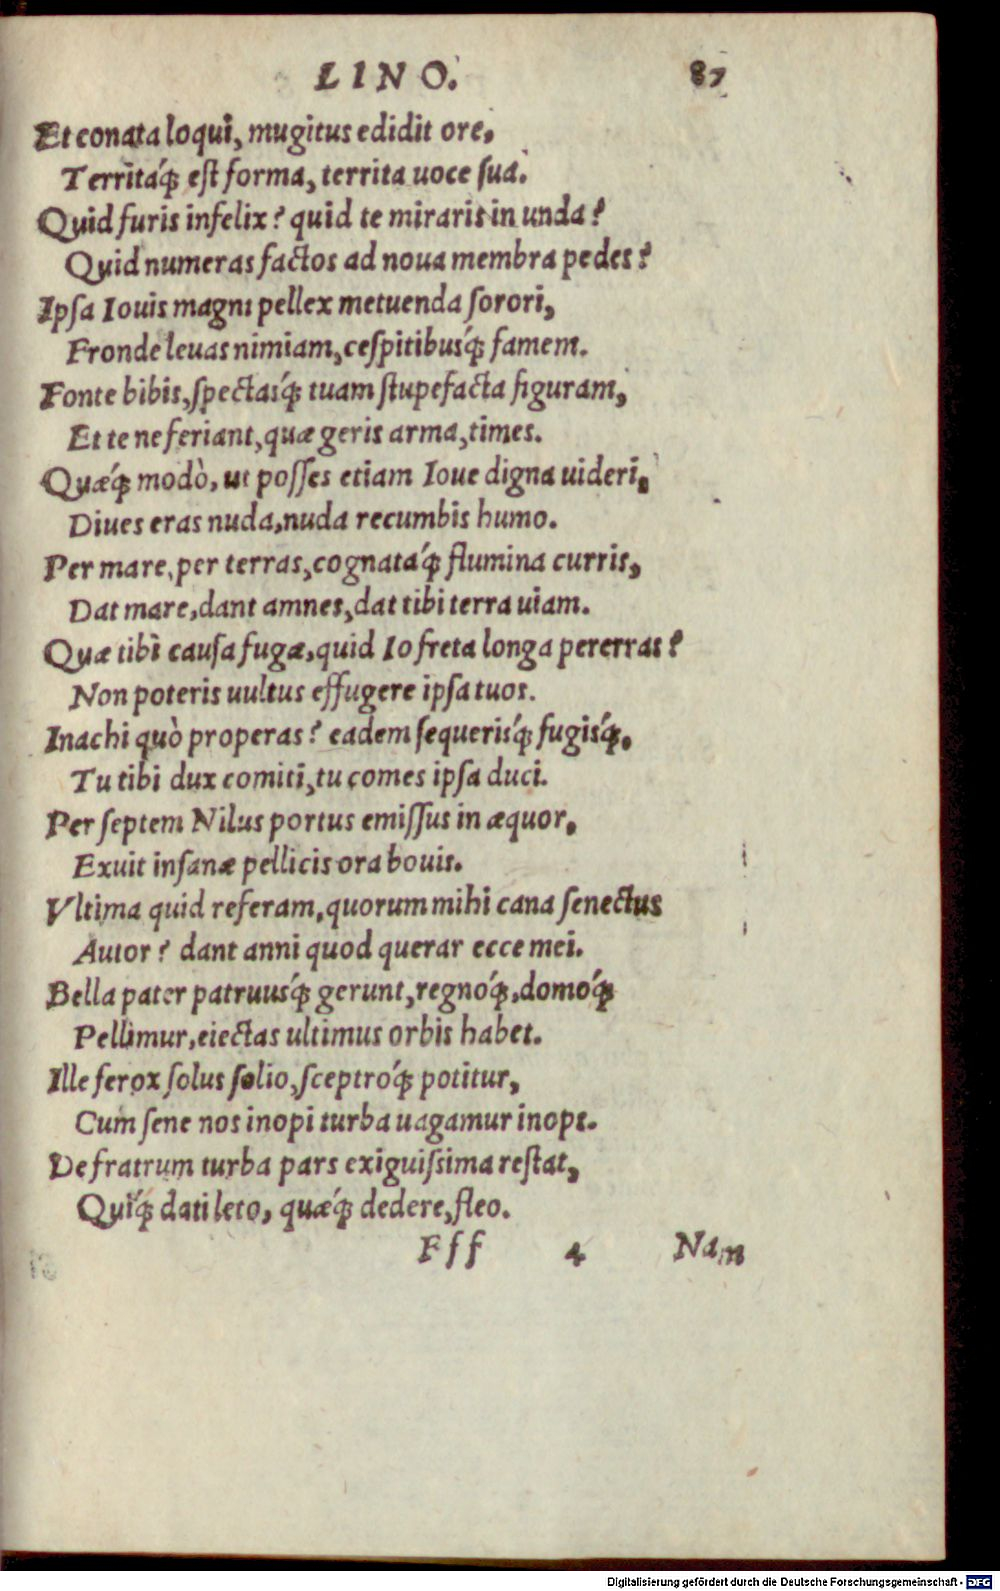 LINO. 87
Et conata loqui, mugitus edidit ore,
Territáq́; est forma, territa uoce sua.
Quid furis infelix? quid te miraris in unda?
Quid numeras factos ad noua membra pedes?
Ipsa Iouis magni pellex metuenda sorori,
Fronde leuas nimiam, cespitibusq́; famem.
Fonte bibis, spectasq́; tuam stupefacta figuram,
Et te ne feriant, quæ geris arma, times.
Quæq́; modò, ut posses etiam Ioue digna uideri,
Diues eras nuda, nuda recumbis humo.
Per mare, per terras, cognataq́; flumina curris,
Dat mare, dant amnes, dat tibi terra uiam.
Quæ tibi causa fugæ, quid Io freta longa pererras?
Non poteris uultus effugere ipsa tuos.
Inachi quò properas? eadem sequerisq́; fugisq́;,
Tu tibi dux comiti, tu comes ipsa duci.
Per septem Nilus portus emissus in æquor,
Exuit insanæ pellicis ora bouis.
Vltima quid referam, quorum mihi cana senectus
Autor? dant anni quod querar ecce mei.
Bella pater patruusq́; gerunt, regnoq́;, domoq́;
Pellimur, eiectas ultimus orbis habet.
Ille ferox solus solio, sceptroq́; potitur,
Cum sene nos inopi turba uagamur inops.
De fratrum turba pars exiguissima restat,
Quiq́; dati leto, quæq́; dedere, fleo.
Fff 4 Nam
Digitalisierung gefördert durch die Deutsche Forschungsgemeinschaft - DFG